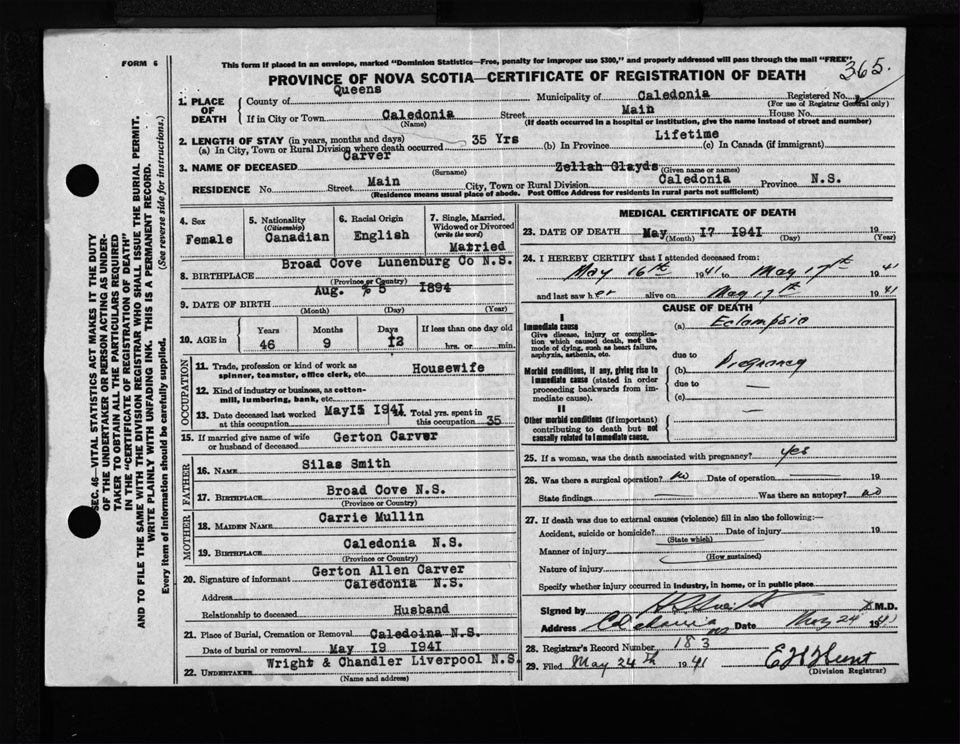 FORM 6
This form if placed in an envelope, marked "Dominion Statistics—Free, penalty for improper use $300," and properly addressed will pass through the mail "FREE"
365.
PROVINCE OF NOVA SCOTIA—CERTIFICATE OF REGISTRATION OF DEATH
1. PLACE OF DEATH
County of Queens Municipality of Caledonia Registered No.
(For use of Registrar General only)
If in City or Town Caledonia Street Main House No.
(Name) (If death occurred in a hospital or institution, give the name instead of street and number)
2. LENGTH OF STAY (in years, months and days)
(a) In City, Town or Rural Division where death occurred 35 Yrs (b) In Province Lifetime (c) In Canada (if immigrant)
3. NAME OF DECEASED Carver Zellah Glayds
(Surname) (Given name or names)
RESIDENCE No. Street Main City, Town or Rural Division Caledonia Province N.S.
(Residence means usual place of abode. Post Office Address for residents in rural parts not sufficient)
4. Sex Female
5. Nationality (Citizenship) Canadian
6. Racial Origin English
7. Single, Married, Widowed or Divorced (write the word) Matried
8. BIRTHPLACE Broad Cove Lunenburg Co N.S.
(Province or Country)
9. DATE OF BIRTH Aug. 5 1894
(Month) (Day) (Year)
10. AGE in Years 46 Months 9 Days 12 If less than one day old hrs. or min.
OCCUPATION
11. Trade, profession or kind of work as spinner, teamster, office clerk, etc. Housewife
12. Kind of industry or business, as cotton-mill, lumbering, bank, etc.
13. Date deceased last worked at this occupation May 15 1941 14. Total yrs. spent in this occupation 35
15. If married give name of wife or husband of deceased Gerton Carver
FATHER
16. NAME Silas Smith
17. BIRTHPLACE Broad Cove N.S.
(Province or Country)
MOTHER
18. MAIDEN NAME Carrie Mullin
19. BIRTHPLACE Caledonia N.S.
(Province or Country)
20. Signature of informant Gerton Allen Carver
Address Caledonia N.S.
Relationship to deceased Husband
21. Place of Burial, Cremation or Removal Caledoina N.S.
Date of burial or removal May 19 1941
22. UNDERTAKER Wright & Chandler Liverpool N.S.
(Name and address)
MEDICAL CERTIFICATE OF DEATH
23. DATE OF DEATH May 17 1941 19
(Month) (Day) (Year)
24. I HEREBY CERTIFY that I attended deceased from:
May 16th 1941 to May 17th 1941
and last saw her alive on May 17th 1941
CAUSE OF DEATH
I
Immediate cause
Give disease, injury or complication which caused death, not the mode of dying, such as heart failure, asphyxia, asthenia, etc.
(a) Eclampsia
due to
Morbid conditions, if any, giving rise to immediate cause (stated in order proceeding backwards from immediate cause).
(b) Pregnancy
due to —
(c) —
II
Other morbid conditions (if important) contributing to death but not causally related to immediate cause.
25. If a woman, was the death associated with pregnancy? yes
26. Was there a surgical operation? No Date of operation 19
State findings — Was there an autopsy? no
27. If death was due to external causes (violence) fill in also the following:—
Accident, suicide or homicide? Date of injury 19
(State which)
Manner of injury
(How sustained)
Nature of injury
Specify whether injury occurred in industry, in home, or in public place
Signed by M.D.
Address Caledonia NS Date May 24 1941
28. Registrar's Record Number 183
29. Filed May 24th 1941 E H Hunt
(Division Registrar)
SEC. 46—VITAL STATISTICS ACT MAKES IT THE DUTY
OF THE UNDERTAKER OR PERSON ACTING AS UNDER-
TAKER TO OBTAIN ALL THE PARTICULARS REQUIRED
IN THE "CERTIFICATE OF REGISTRATION OF DEATH"
AND TO FILE THE SAME WITH THE DIVISION REGISTRAR WHO SHALL ISSUE THE BURIAL PERMIT.
WRITE PLAINLY WITH UNFADING INK. THIS IS A PERMANENT RECORD.
Every item of information should be carefully supplied. (See reverse side for instructions.)